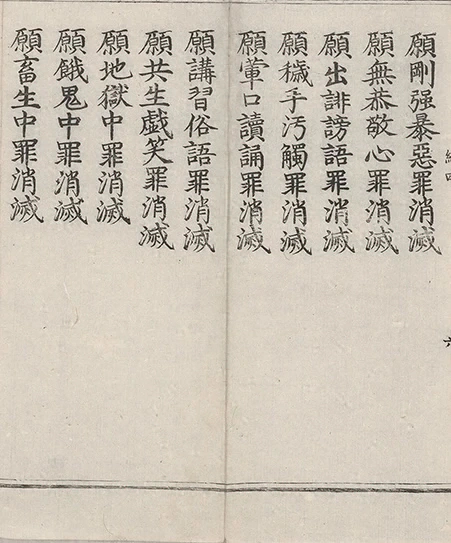 願剛强暴惡罪消滅
願無恭敬心罪消滅
願出誹謗語罪消滅
願穢手汚觸罪消滅
願葷口讀誦罪消滅
願講習俗語罪消滅
願共生戱笑罪消滅
願地獄中罪消滅
願餓鬼中罪消滅
願畜生中罪消滅